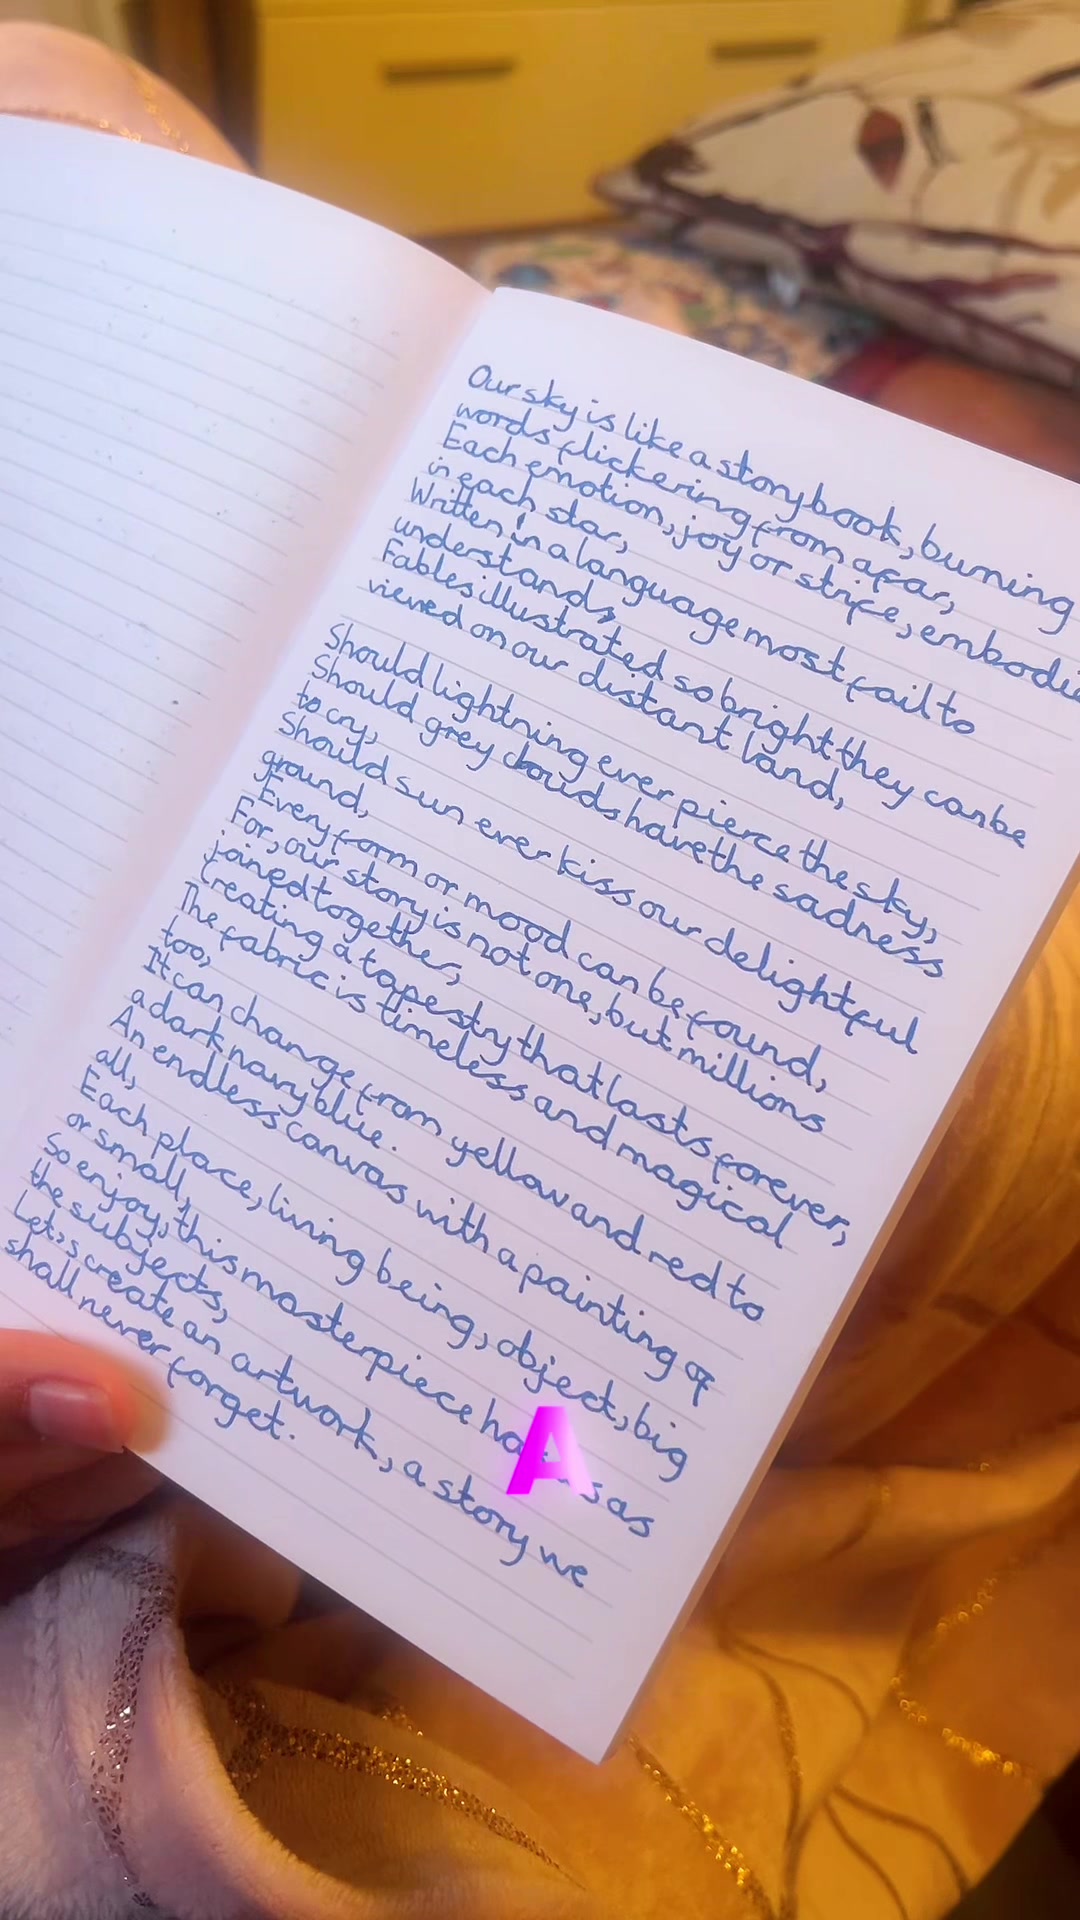 Our sky is like a story book, burning
words flickering from afar,
Each emotion, joy or strife, embodied
in each star,
Written in a language most fail to
understand,
Fables illustrated so bright they can be
viewed on our distant land,
Should lightning ever pierce the sky,
Should grey clouds have the sadness
to cry,
Should sun ever kiss our delightful
ground,
Every form or mood can be found,
For, our story is not one, but millions
joined together,
Creating a tapestry that lasts forever,
The fabric is timeless and magical
too,
It can change from yellow and red to
a dark navy blue.
An endless canvas with a painting of
all,
Each place, living being, object, big
or small,
So enjoy, this masterpiece as
the subjects,
Let's create an artwork, a story we
shall never forget.
A